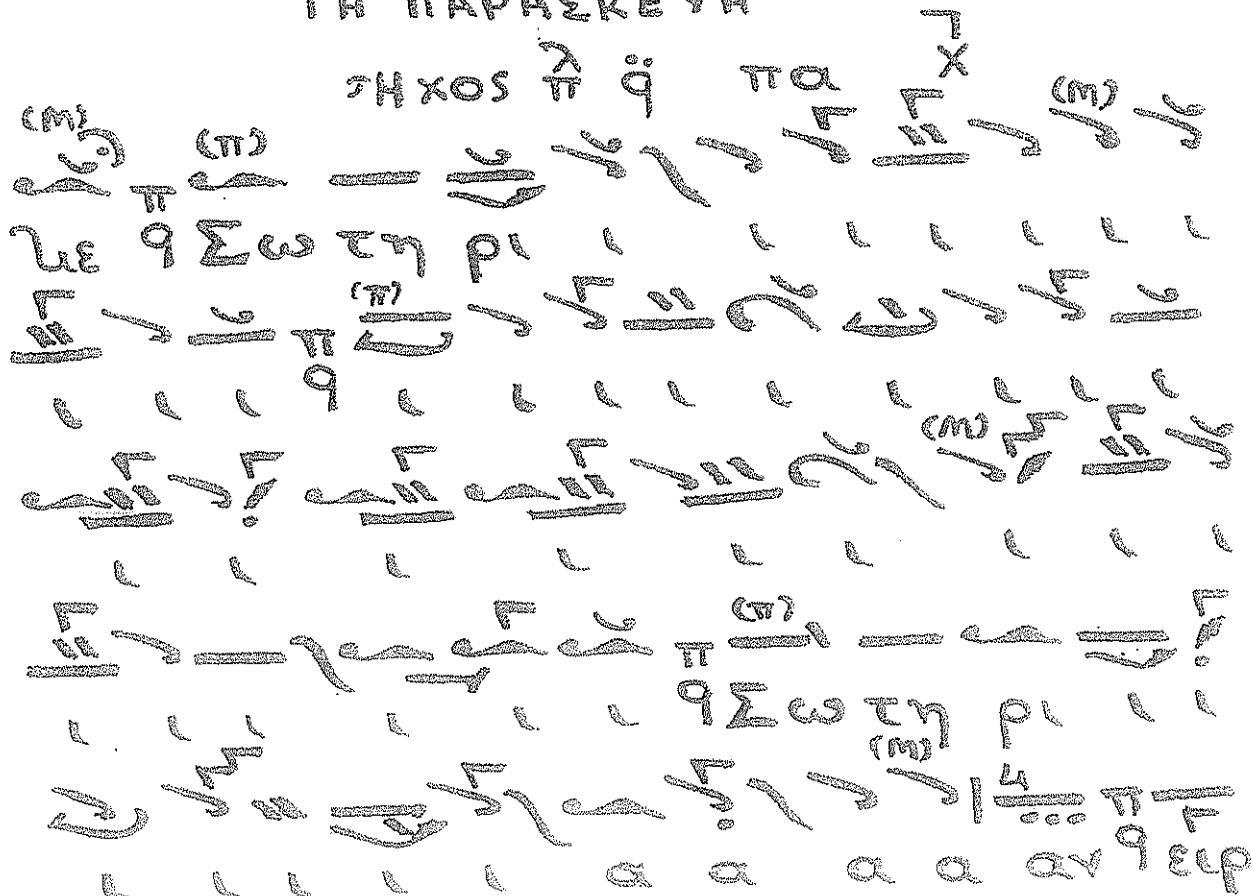 ΤΗ ΠΑΡΑΣΚΕΥΗ
Ηχος λ π q̈ πα χ
(Μ) (π) (Μ)
Κε π q Σω τη ρι ι ι ι ι ι ι ι
(π)
ι ι ι π q ι ι ι ι ι ι ι ι ι
(Μ)
ι ι ι ι ι ι ι ι ι
(π)
ι ι ι ι ι ι π q Σω τη ρι ι ι
(Μ)
ι ι ι ι ι α α α α αν π q ειρ